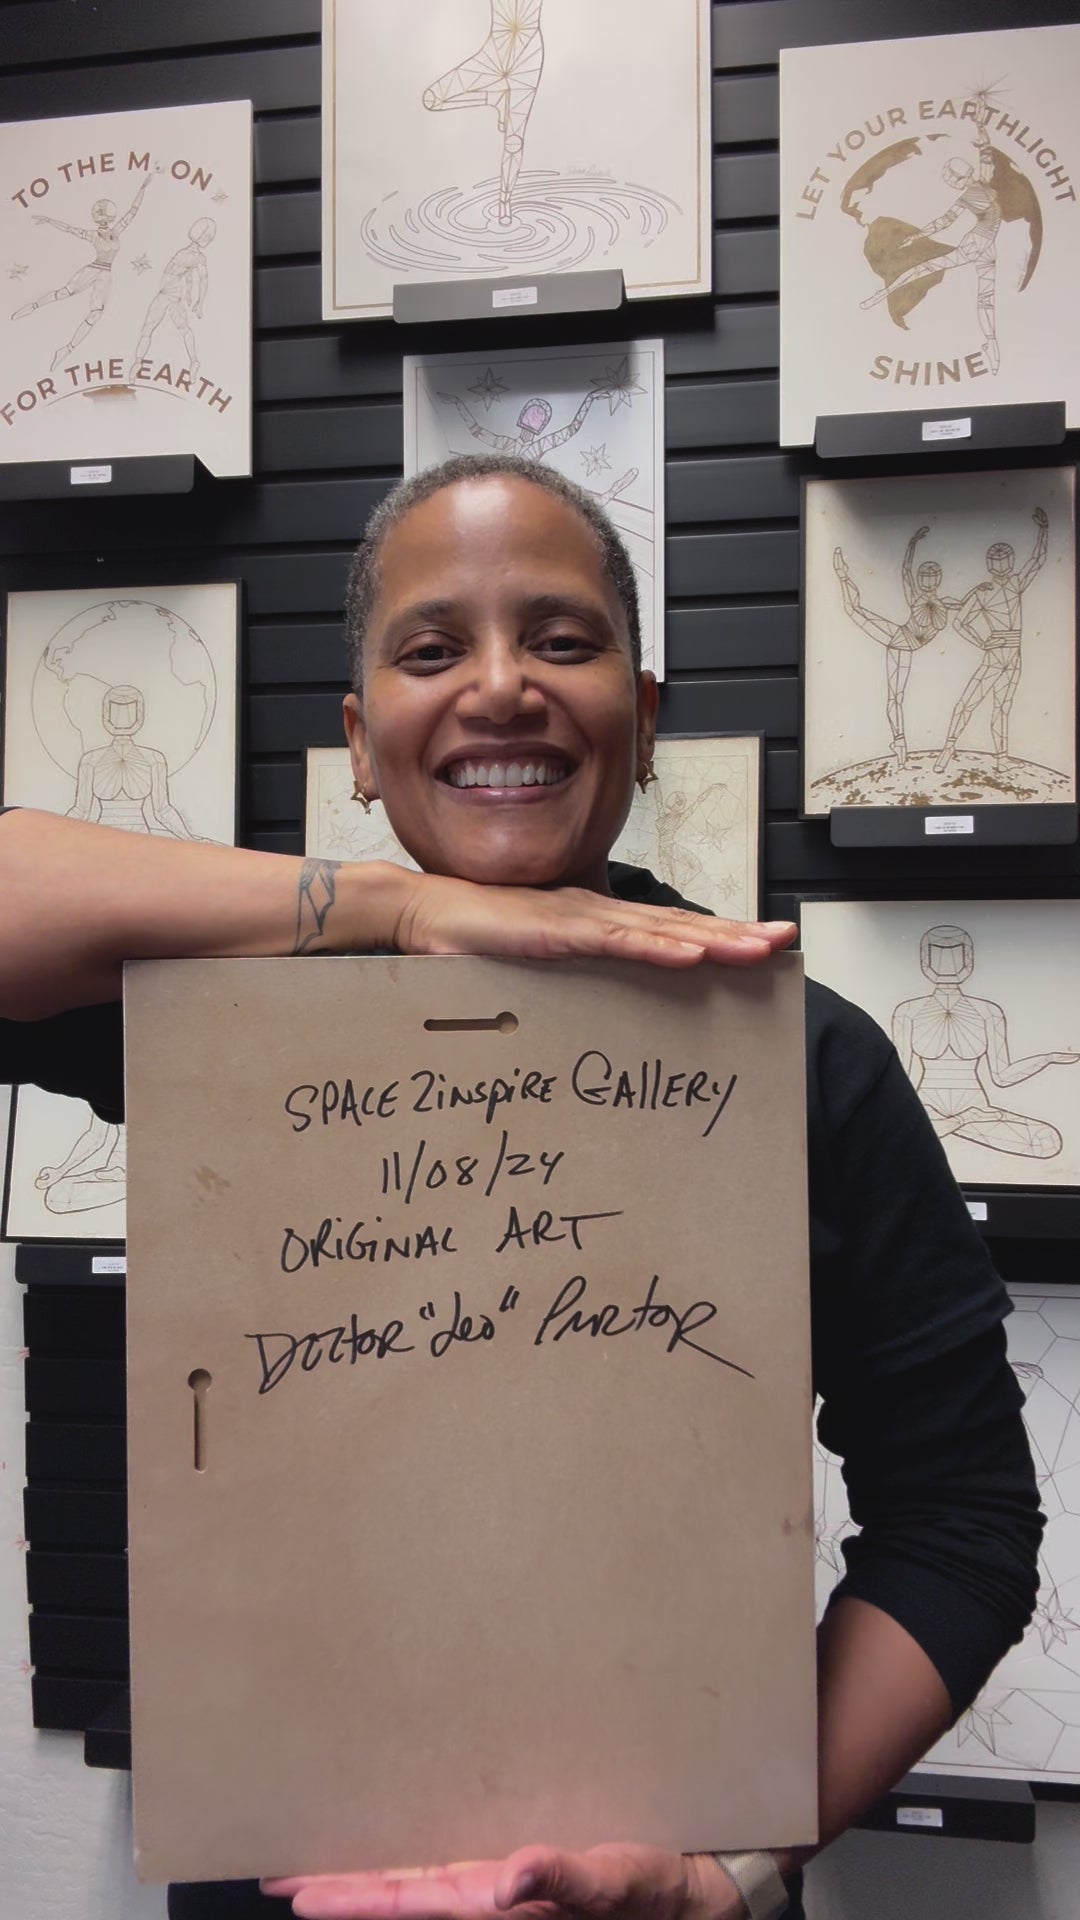 TO THE MOON
FOR THE EARTH
LET YOUR EARTHLIGHT
SHINE
SPACE2inspiRE GallERy
11/08/24
ORiGiNAL ART
DocToR "Leo" PRoctoR